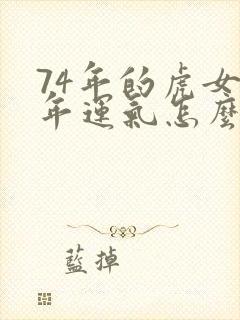 74年的虎女
年運氣怎麼
藍掉